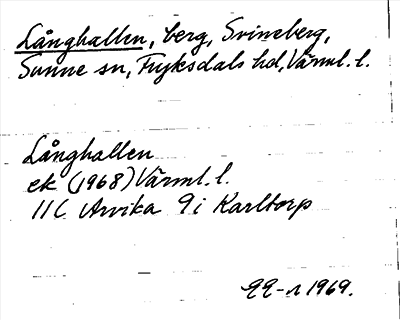 Långhallen, berg, Svineberg,
Sunne sn, Fryksdals hd, Värml. l.
Långhallen
ek (1968) Värml. l.
11C Arvika 9i Karltorp
1969.